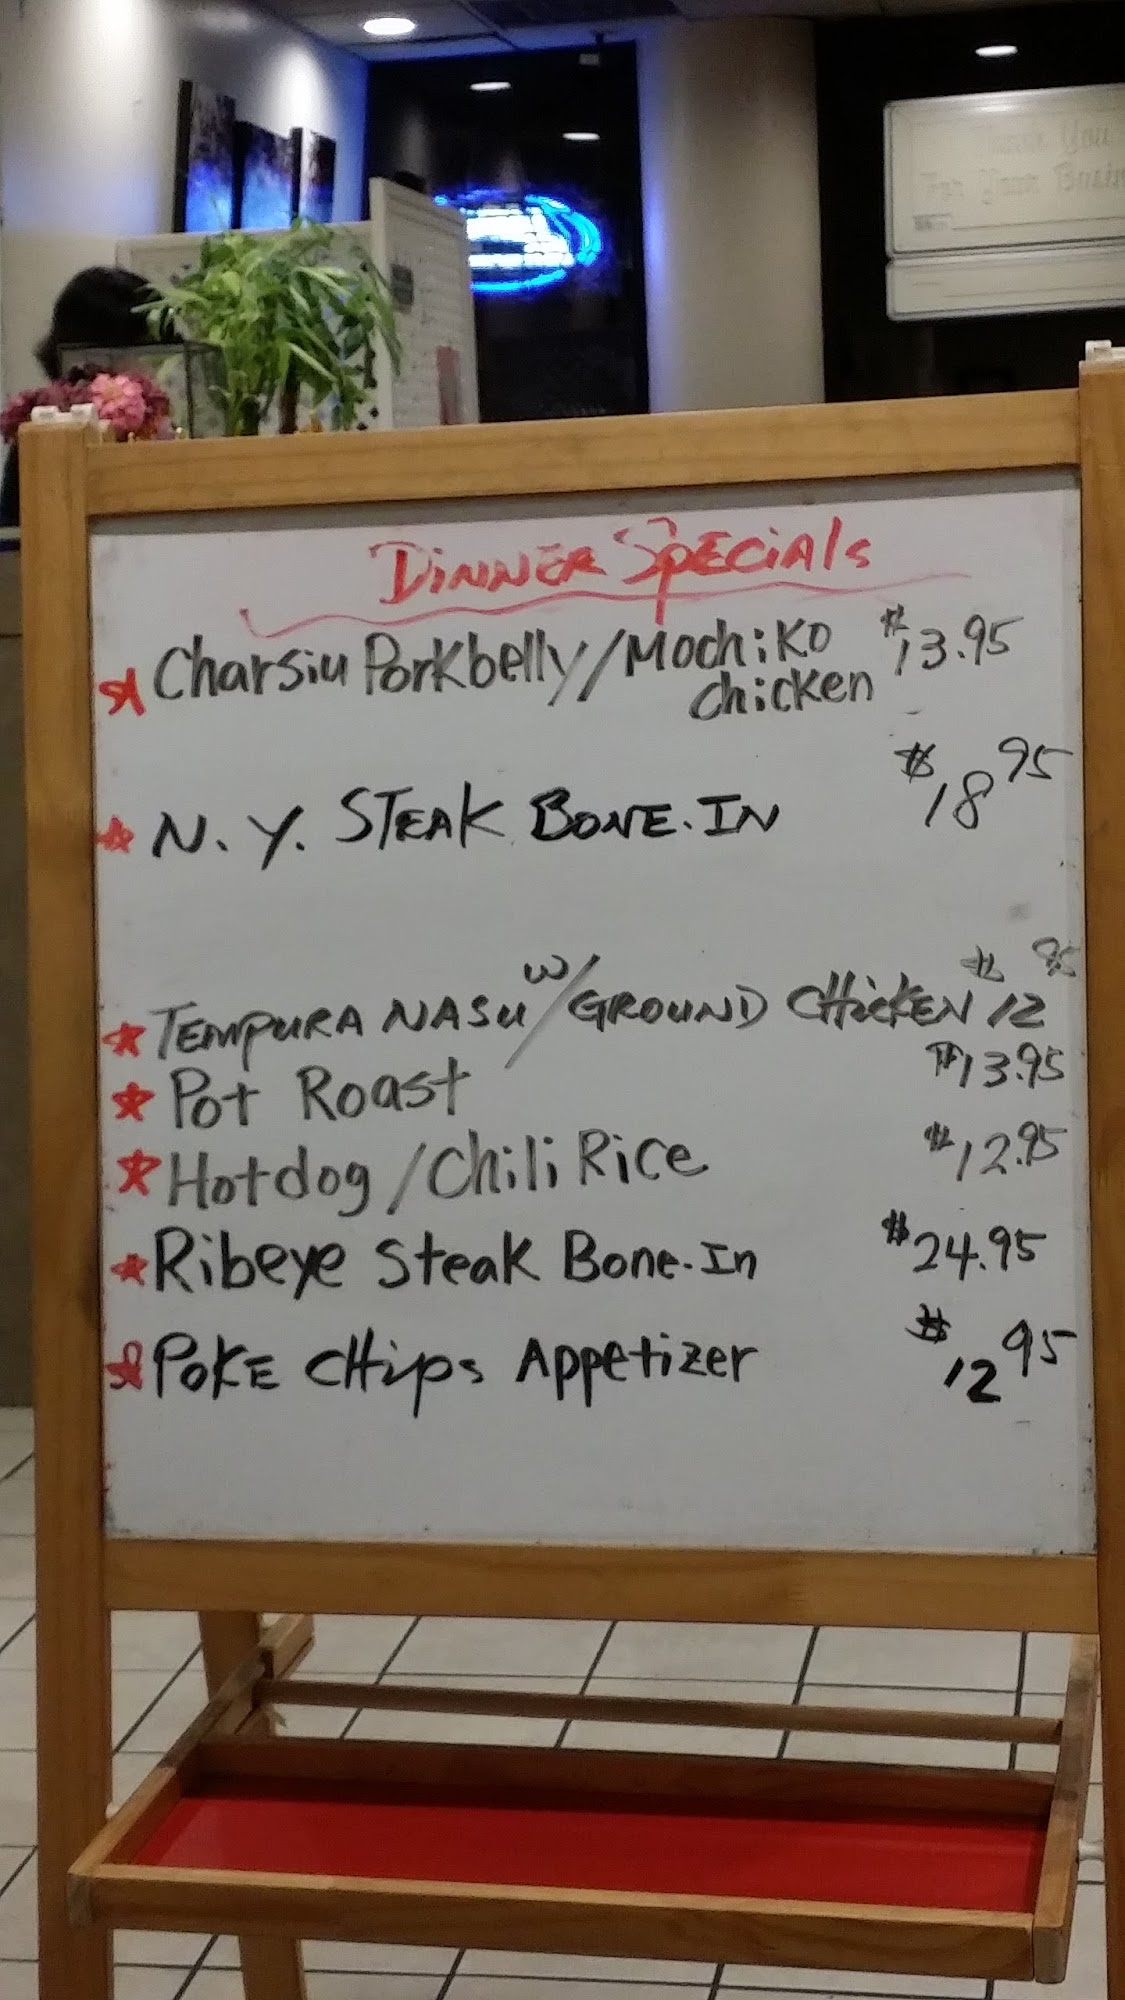 Dinner Specials
Charsiu Porkbelly/Mochiko $13.95
chicken
N.Y. STEAK BONE-IN $18 95
TEMPURA NASU w/GROUND CHICKEN $12 95
Pot Roast $13.95
Hotdog/Chili Rice $12.95
Ribeye Steak Bone-In $24.95
POKE CHips Appetizer $12 95
You
For Your